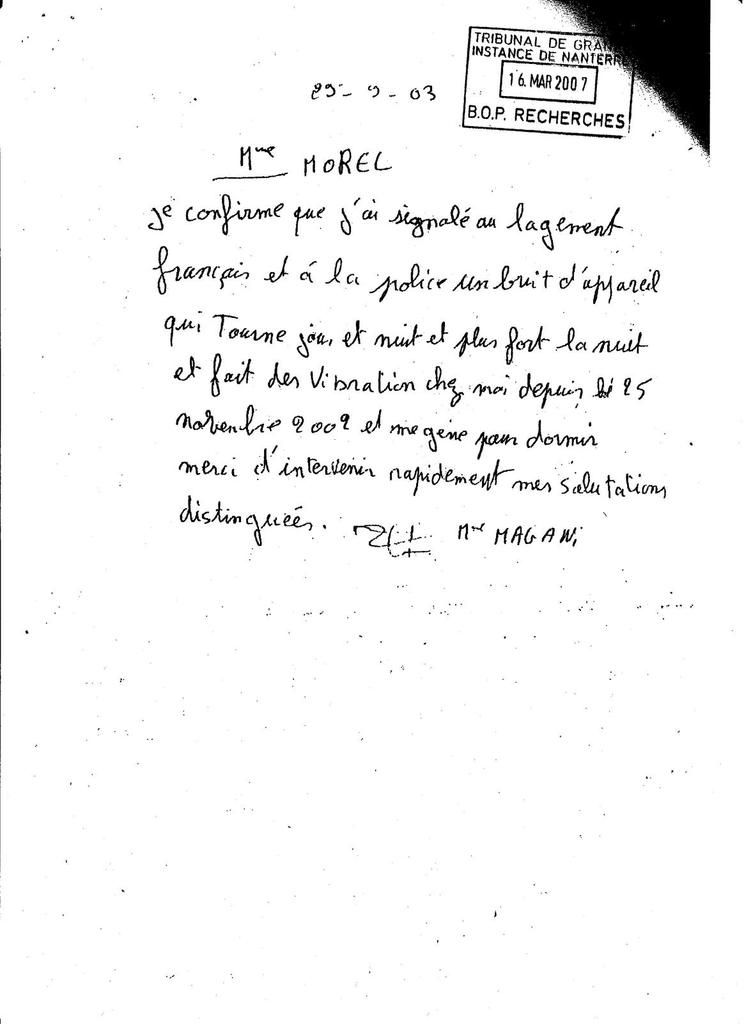 TRIBUNAL DE GRAN
INSTANCE DE NANTERR
16. MAR 2007
B.O.P. RECHERCHES
29-9-03
Mme MOREL
je confirme que j'ai signalé au lagement
français et à la police un bruit d'appareil
qui Tourne jour et nuit et plus fort la nuit
et fait des Vibration chez moi depuis le 25
novenbre 2002 et me gène pour dormir
merci d'intervenir rapidement mes salutations
distinguées. Mme MAGANi